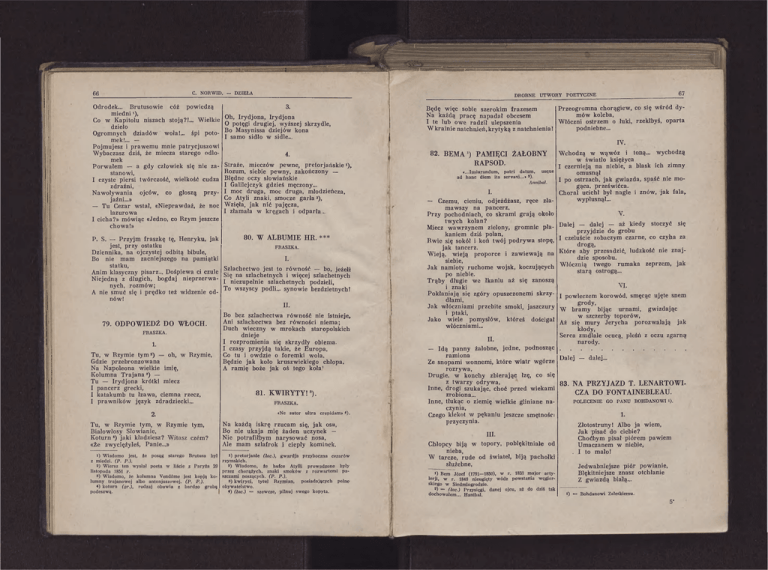 66
C. NORWID. — DZIEŁA
Odrodek... Brutusowie cóż powiedzą
miedni ¹),
Co w Kapitolu niszach stoją?!... Wielkie
dzieło
Ogromnych dziadów woła!...
Pojmujesz i prawemu mnie patrycjuszowi
Wybaczasz dziś, że miecza starego odło-
mek
Porwałem — a gdy człowiek się nie za-
stanowi,
I czysto piersi twórczość, wielkość cudza
zdradni,
Nawoływania ojców, co głoszą przy-
jaźni...»
— Tu Cezar wstał, «Nieprawdaż, że noc
lazurowa
I cicha?» mówiąc «Jedno, co Rzym jeszcze
chowa!»
P. S. — Przyjm fraszkę tę, Henryku, jak
jest, przy ostatku
Dziennika, na ojczystej odbitą bibule,
Bo nie mam zacniejszego na pamiątki
statku,
Anim klasyczny pisarz... Dośpiewa ci czule
Niejedną z długich, bogdaj nieprzerwa-
nych, rozmów;
A nie smuć się i prędko też widzenie od-
nów!
79. ODPOWIEDŹ DO WŁOCH.
FRASZKA.
1.
Tu, w Rzymie tym ²) — oh, w Rzymie,
Gdzie przebrozowana
Na Napoleona wielkie imię,
Kolumna Trajana ³) —
Tu — Irydiona krótki miecz
I pancerz grecki,
I katakumb tu ława, ciemna rzecz,
I prawników język zdradziecki...
2.
Tu, w Rzymie tym, w Rzymie tym,
Białowłosy Słowianie,
Koturn ⁴) jaki kłodziesz? Witosz czem?
«Że zwyciężyłeś, Panie...»
¹) Wiadomo jest, że posąg starego Brutusa był
z miedzi. (P. P.).
²) Wiersz ten wysłał poeta w liście z Paryża 20
listopada 1856 r.
³) Wiadomo, że kolumna Vendôme jest kopją ko-
lumny trajanowej albo antonjuszowej. (P. P.).
⁴) koturn (gr.), rodzaj obuwia z bardzo grubą
podeszwą.
3.
Oh, Irydjona, Irydjona
O potęgi drugiej, wyższej skrzydle,
Bo Masynissa dziejów kona
I samo sidło w sidle...
4.
Straże, mieczów pewne, pretorjańskie ¹),
Rozum, siebie pewny, zakończony —
Błędne oczy słowiańskie
I Galilejczyk gdzieś męczony...
I moc druga, moc druga, młodzieńcza,
Co Atyli znaki, smocze garła ²),
Wzięła, jak nić pajęcza,
I złamała w kręgach i odparła...
80. W ALBUMIE HR. ***
FRASZKA.
I.
Szlachectwo jest to równość — bo, jeżeli
Się na szlachetnych i więcej szlachetnych
I niezupełnie szlachetnych podzieli,
To wszyscy podli... synowie bezdzietnych!
II.
Bo bez szlachectwa równość nie istnieje,
Ani szlachectwa bez równości niema;
Duch wieczny w mrokach staropolskich
dnieje
I rozpromienia się skrzydły obiema.
I czasy przyjdą takie, że Europa,
Co tu i owdzie o foremki woła,
Będzie jak koło kruszwickiego chłopa,
A ramię boże jak oś tego koła!
81. KWIRYTY! ³).
FRASZKA.
«Ne sutor ultra crepidam» ⁴).
Na każdą iskrę rzucam się, jak osa,
Bo nie ukaja mię żaden uczynek —
Nie potrafiłbym narysować nosa,
Ale mam szlafrok i ciepły kominek.
¹) pretorjanie (łac.), gwardja przyboczna cezarów
rzymskich.
²) Wiadomo, że hufce Atylli prowadzone były
³) kwiryci, tytuł Rzymian, posiadających pełne
obywatelstwo.
⁴) (łac.) — szewcze, pilnuj swego kopyta.
DROBNE UTWORY POETYCZNE
67
Będę więc sobie szerokim frazesem
Na każdą pracę napadał obcesem
I te lub owe radził ulepszenia
W krainie natchnień, krytyką z natchnienia!
82. BEMA ¹) PAMIĘCI ŻAŁOBNY
RAPSOD.
«...Iusiurandum, patri datum, usque
ad hanc diem ita servavi...» ²).
Annibal
I.
— Czemu, Cieniu, odjeżdżasz, ręce zła-
mawszy na pancerz,
Przy pochodniach, co skrami grają około
twych kolan?
Miecz wawrzynem zielony, gromnic pła-
kaniem dziś polan,
Rwie się sokół i koń twój podrywa stopę,
jak tancerz.
Wieją, wieją proporce i zawiewają na
siebie,
Jak namioty ruchome wojsk, koczujących
po niebie.
Trąby długie we łkaniu aż się zanoszą
i znaki
Pokłaniają się zgóry opuszczonemi skrzy-
dłami,
Jak włóczniami przebite smoki, jaszczury
i ptaki,
Jako wiele pomysłów, któreś dościgał
włóczniami...
II.
— Idą panny żałobne, jedne, podnosząc
ramiona
Ze snopami wonnemi, które wiatr wgórze
rozrywa,
Drugie, w konchy zbierając łzę, co się
z twarzy odrywa,
Inne, drogi szukając, choć przed wiekami
zrobiona...
Inne, tłukąc o ziemię wielkie gliniane na-
czynia,
Czego klekot w pękaniu jeszcze smętnoś-
przyczynia.
III.
Chłopcy biją w topory, pobłękitniałe od
nieba,
W tarcze, rude od świateł, biją pachołki
służebne,
¹) Bem Józef (1795—1850), w r. 1831 major arty-
lerji, w r. 1848 niezgięty wódz powstania węgier-
skiego w Siedmiogrodzie.
²) — (łac.) Przysięgi, danej ojcu, aż do dziś tak
dochowałem... Hannibal.
Przeogromna chorągiew, co się wśród dy-
mów koleba,
Włóczni ostrzem o łuki, rzekłbyś, oparta
podniebne...
IV.
Wchodzą w wąwóz i toną... wychodzą
w światło księżyca
I czernieją na niebie, a blask ich zimny
omusnął
I po ostrzach, jak gwiazda, spaść nie mo-
gąca, prześwieca.
Chorał ucichł był nagle i znów, jak fala,
wyplusnął...
V.
Dalej — dalej — aż kiedy stoczyć się
przyjdzie do grobu
I czeluście zobaczym czarne, co czyha za
drogą,
Które aby przesadzić, ludzkość nie znaj-
dzie sposobu,
Włócznią twego rumaka zeprzem, jak
starą ostrogą...
VI.
I powleczem korowód, smęcąc ujęte snem
grody,
W bramy bijąc urnami, gwizdając
w szczerby toporów,
Aż się mury Jerycha porozwalają jak
kłody,
Serca zmdlałe ocucą, pleśń z oczu zgarną
narody.
. . . . . . . . . .
Dalej — dalej...
83. NA PRZYJAZD T. LENARTOWI-
CZA DO FONTAINEBLEAU.
POLECENIE GO PANU BOHDANOWI ¹).
1.
Złotostruny! Albo ja wiem,
Jak pisać do ciebie?
Choćbym pisał piórem pawiem
Umaczanem w niebie,
I to mało!
Jedwabniejsze piór powianie,
Błękitniejsze znasz otchłanie
Z gwiazdą białą...
¹) — Bohdanowi Zaleskiemu.
5*